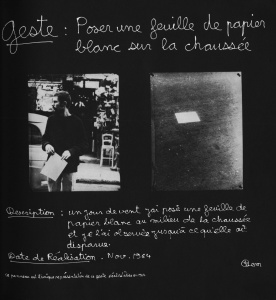 Geste : Poser une feuille de papier
blanc sur la chaussée
Description : un jour de vent j'ai posé une feuille de
papier blanc au milieu de la chaussée
et je l'ai observée jusqu'à ce qu'elle ait
disparue.
Date de Réalisation . Nov. 1984